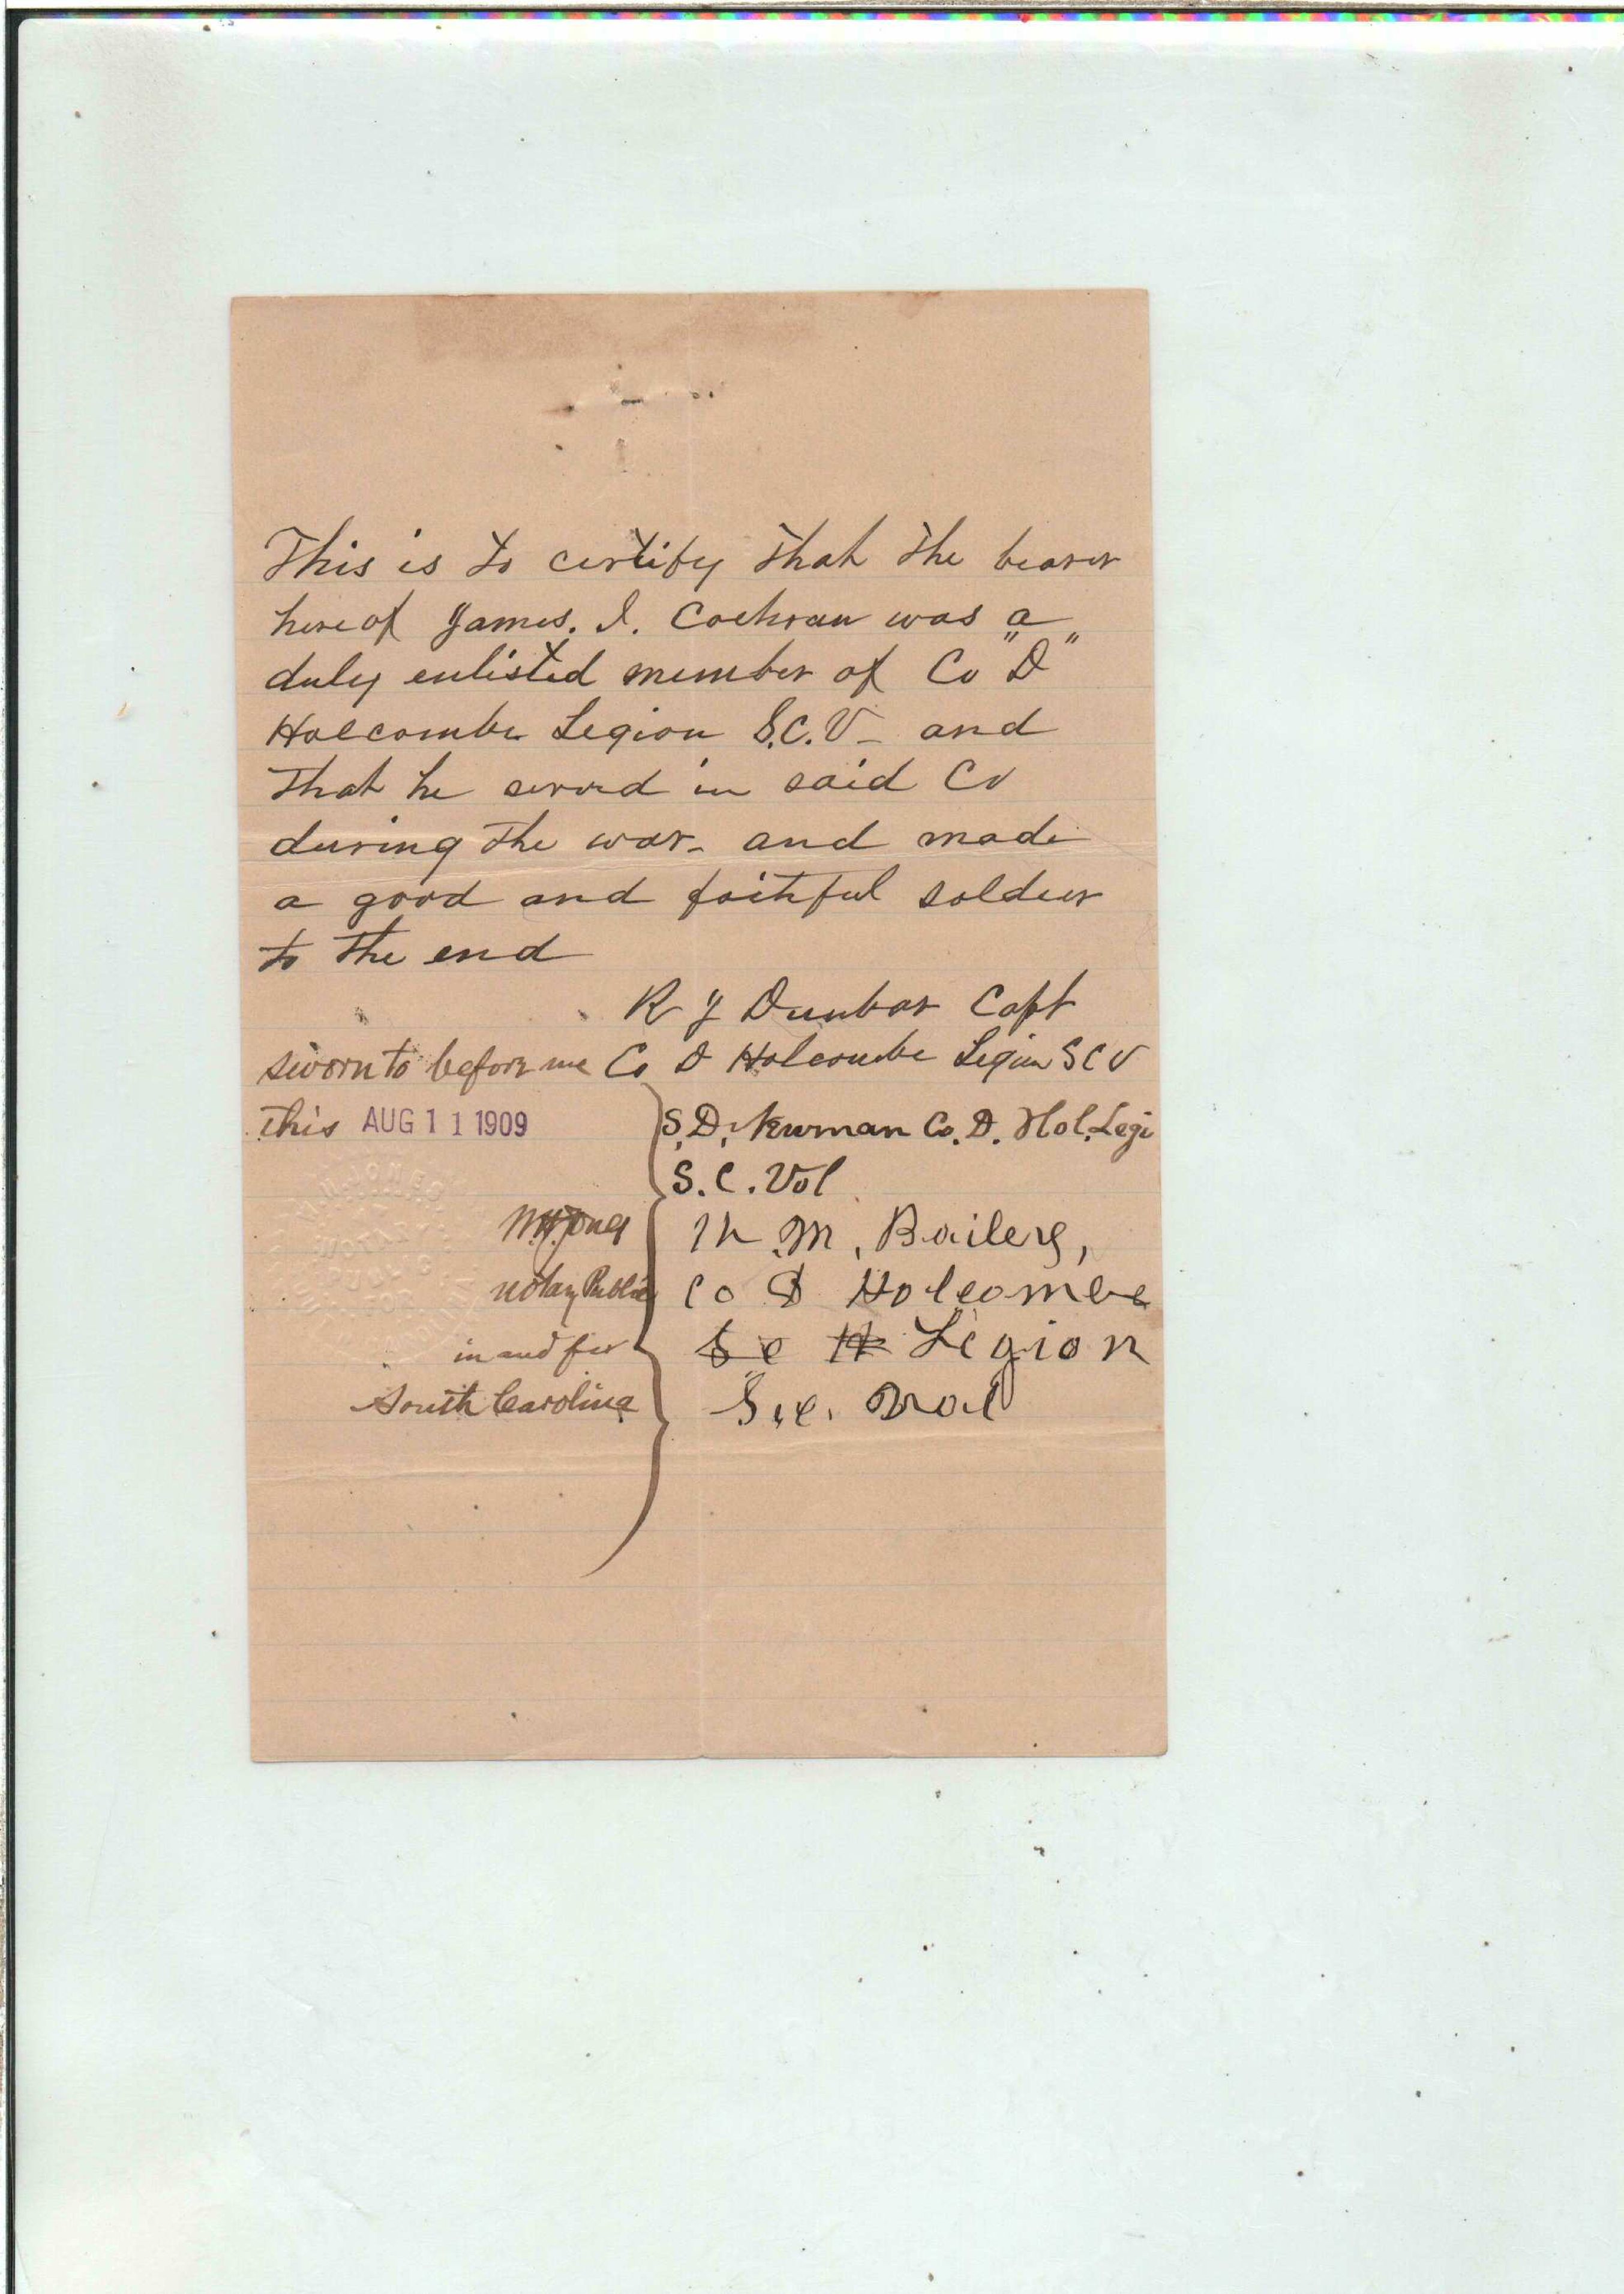 This is to certify that the bearer
hereof James. I. Cochran was a
duly enlisted member of Co "D"
Holcombe Legion S.C.V - and
that he served in said Co
during the war - and made
a good and faithful soldier
to the end
R J Dunbar Capt
Co D Holcombe Legion S C V
sworn to before me
this AUG 11 1909
S. D. Newman Co. D. Hol. Legi
S. C. Vol
M. M. Bailey,
Co D Holcombe
S c H Legion
S. C. Vol
W. H. Jones
Notary Public
in and for
South Carolina
JONES
NOTARY
PUBLIC